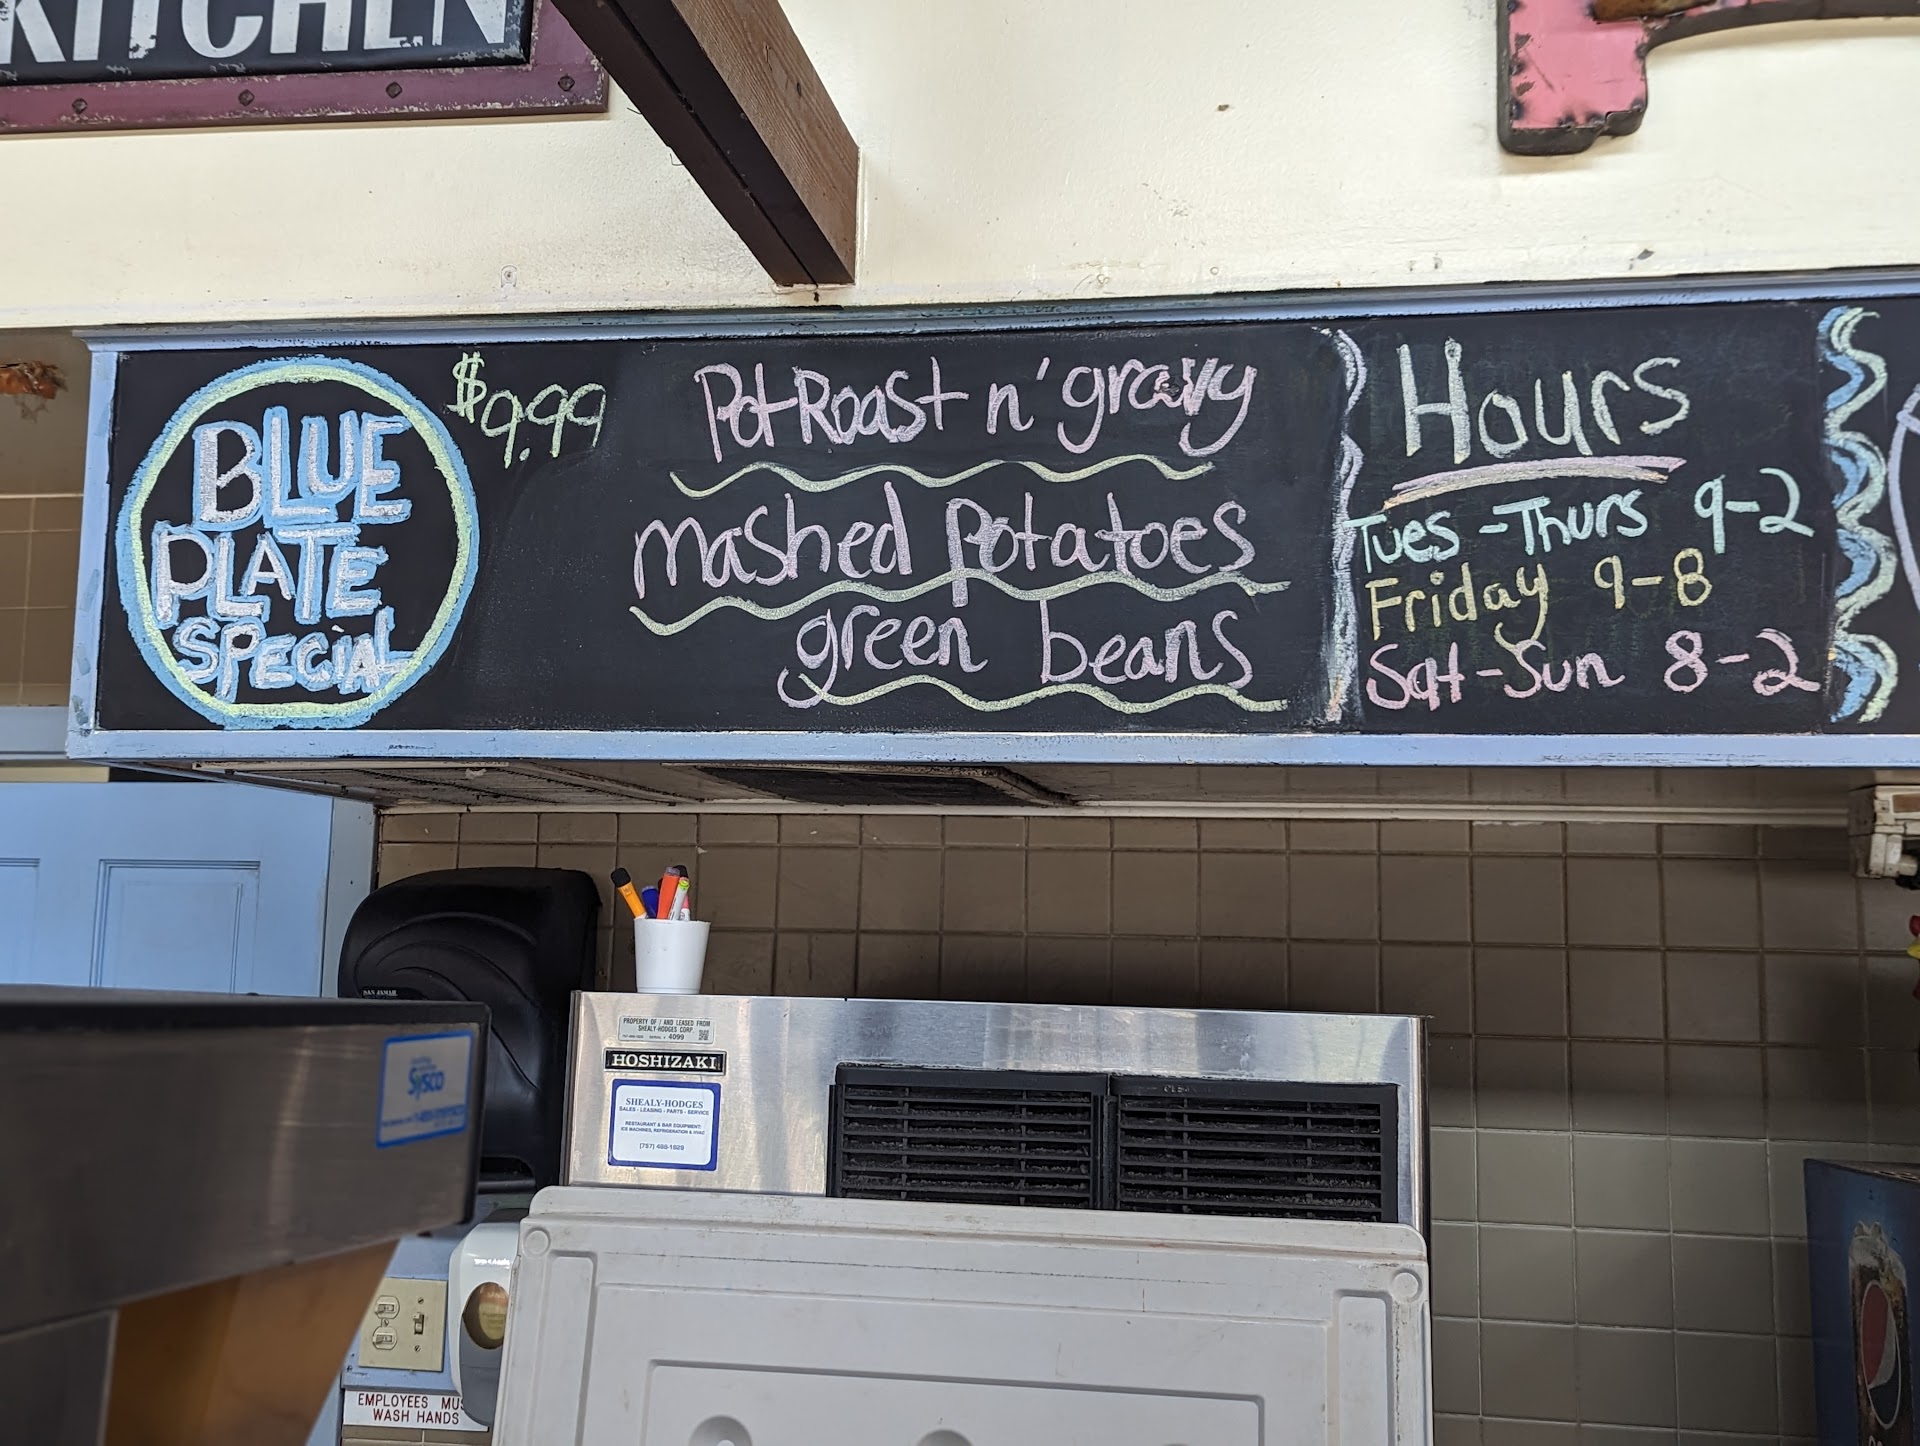 KITCHEN
BLUE
PLATE
SPECIAL
$9.99
Pot Roast n' gravy
mashed potatoes
green beans
Hours
Tues - Thurs 9-2
Friday 9-8
Sat-Sun 8-2
SAN JAMAR
Sysco
PROPERTY OF / AND LEASED FROM
SHEALY-HODGES CORP.
4099
HOSHIZAKI
SHEALY-HODGES
SALES - LEASING - PARTS - SERVICE
RESTAURANT & BAR EQUIPMENT:
ICE MACHINES, REFRIGERATION & HVAC
(757) 488-1829
EMPLOYEES MUS
WASH HANDS